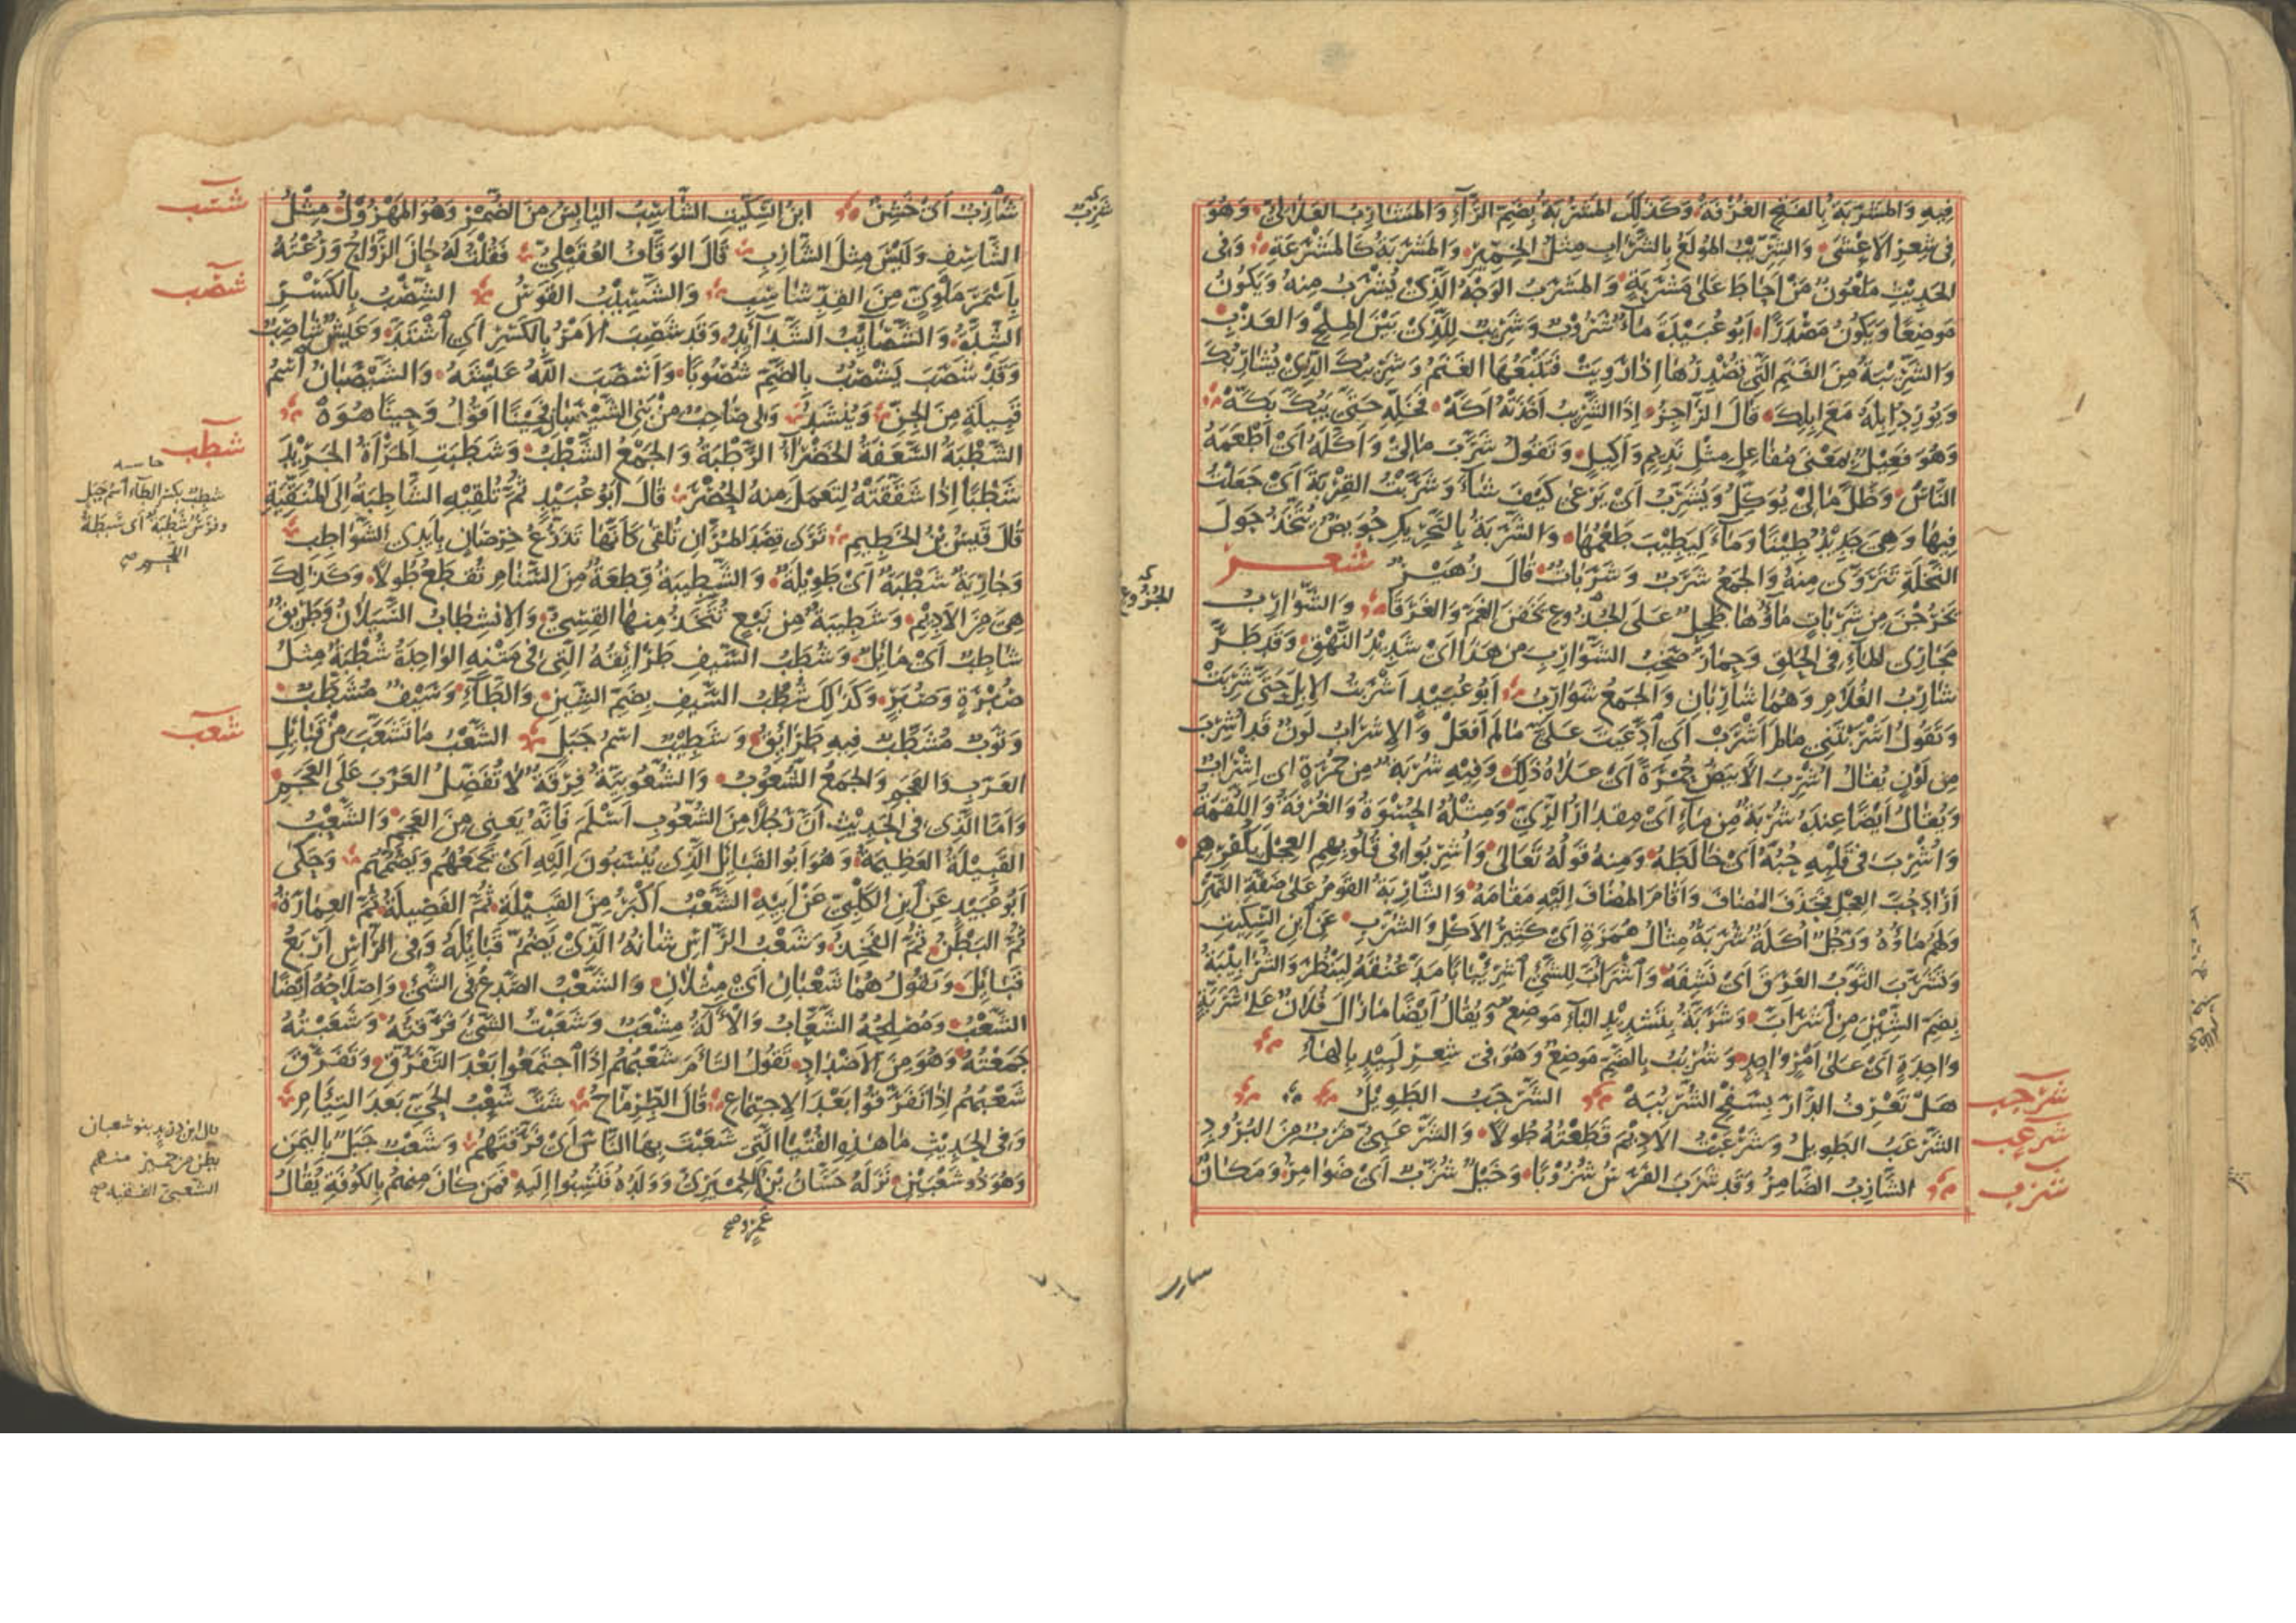 فِيهِ وَالمَشْرَبَةُ بِالفَتحِ الغُرْفَةُ وَكَذَلِكَ المَشْرُبَةُ بِضَمِّ الرَّآءِ وَالمَشَارِبُ العَلَالِيّ وَهُوَ
فِى شِعْرِ الاَعْشَى وَالشِّرِّيبُ المُولَعُ بِالشَّرَابِ مِثْلُ الخِمِّيرِ وَالمَشْرَبَةُ كَالمَشْرَعَةِ وَفِى
الحَدِيثِ مَلْعُونٌ مَنْ اَحَاطَ عَلَى مَشْرَبَةٍ وَالمَشْرَبُ الوَجْهُ الَّذِى يُشْرَبُ مِنهُ وَيَكُونُ
مَوضِعًا وَيَكُونُ مَصْدَرًا اَبُو عُبَيْدَةَ مَآءٌ شَرُوبٌ وَشَرِيبٌ لِلَّذِى بَيْنَ المِلْحِ وَالعَذْبِ
وَالشَّرِيبَةُ مِنَ الغَنَمِ الَّتِى تُصْدِرُهَا اِذَا رَوِيَتْ فَتَتْبَعُهَا الغَنَمُ وَشَرِيبُكَ الَّذِى يُشَارِبُكَ
وَيُورِدُ اِبِلَهُ مَعَ اِبِلِكَ قَالَ الرَّاجِزُ اِذَا الشَّرِيبُ اَخَذَتْهُ اَكَّهْ فَخَلِّهِ حَتَّى يَبُكَّ بَكَّهْ
وَهُوَ فَعِيلٌ بِمَعْنَى مُفَاعِلٍ مِثْلُ نَدِيمٍ وَاَكِيلٍ وَتَقُولُ شَرَّبَ مَالِى وَاَكَّلَهُ اَىْ اَطْعَمَهُ
النَّاسَ وَظَلَّ مَالِى يُؤَكِّلُ وَيُشَرِّبُ اَىْ يَرْعَى كَيْفَ شَآءَ وَشَرَّبْتُ القِرْبَةَ اَىْ جَعَلْتُ
فِيهَا وَهِىَ جَدِيدٌ طِينًا وَمَآءً لِيَطِيبَ طَعْمُهَا وَالشَّرَبَةُ بِالتَّحْرِيكِ حُوَيضٌ يُتَّخَذُ حَوْلَ
النَّخْلَةِ تَتَرَوَّى مِنهُ وَالجَمْعُ شَرَبٌ وَشَرَبَاتٌ قَالَ زُهَيْرٌ شعر
يَخرُجْنَ مِن شَرَبَاتٍ مَاؤُهَا طَحِلٌ عَلَى الجُذُوعِ يَخَفْنَ الغَمَّ وَالغَرَقَا وَالشَّوَارِبُ
مَجَارِى المَآءِ فِى الحَلْقِ وَحِمَارٌ صَخِبُ الشَّوَارِبِ مِن هَذَا اَىْ شَدِيدُ النَّهْقِ وَقَد طَرَّ
شَارِبُ الغُلَامِ وَهُمَا شَارِبَانِ وَالجَمعُ شَوَارِبُ اَبُو عُبَيدٍ اَشْرَبتُ الاِبِلَ حَتَّى شَرِبَتْ
وَتَقُولُ اَشْرَبْتَنِى مَا لَم اَشْرَبْ اَى اَدَّعَيْتَ عَلَىَّ مَا لَم اَفعَلْ وَالاِشرَابُ لَونٌ قَد اُشْرِبَ
مِن لَوْنٍ يُقَالُ اُشْرِبَ الاَبيَضُ حُمْرَةً اَىْ عَلَاهُ ذَلِكَ وَفِيهِ شُرْبَةٌ مِن حُمْرَةٍ اى اِشْرَابٌ
وَيُقَالُ اَيضًا عِندَهُ شُرْبَةٌ مِن مَآءٍ اَىْ مِقْدَارُ الرِّىِّ وَمِثْلُهُ الحُسْوَةُ وَالغُرْفَةُ وَاللُّقْمَةُ
وَاُشْرِبَ فِى قَلْبِهِ حُبَّهُ اَىْ خَالَطَهُ وَمِنهُ قَولُهُ تَعَالَى وَاُشْرِبُوا فِى قُلُوبِهِمِ العِجْلَ بِكُفْرِهِمْ
اَرَادَ حُبَّ العِجْلِ فَحَذَفَ المُضَافَ وَاَقَامَ المُضَافَ اِلَيْهِ مَقَامَهُ وَالشَّارِبَةُ القَومُ عَلَى ضَفَّةِ النَّهْرِ
وَلَهُم مَاؤُهُ وَرَجُلٌ اُكَلَةٌ شُرَبَةٌ مِثَالُ هُمَزَةٍ اَىْ كَثِيرُ الاَكلِ وَالشُّربِ عَنِ ابنِ السِّكِّيتِ
وَتَشَرَّبَ الثَّوبُ العَرَقَ اَىْ نَشِفَهُ وَاشْرَاَبَّ لِلشَّىْءِ اشْرِئْبَابًا مَدَّ عُنُقَهُ لِيَنْظُرَ وَالشُّرَأْبِيبَةُ
بِضَمِّ الشِّينِ مِن اَشْرَاَبَّ وَشَرَبَّةُ بِتَشْدِيدِ البَآءِ مَوضِعٌ وَيُقَالُ اَيْضًا مَا زَالَ فُلَانٌ عَلَى شَرَبَّةٍ
وَاحِدَةٍ اَىْ عَلَى اَمْرٍ وَاحِدٍ وَشُرْبُبٌ بِالضَّمِّ مَوضِعٌ وَهُوَ فِى شِعرِ لَبِيدٍ بِالهَآءِ
هَلْ تَعْرِفُ الدَّارَ بِسَفْحِ الشُّرْبُبَهْ الشَّرْجَبُ الطَّوِيلُ
الشَّرْعَبُ الطَّوِيلُ وَشَرْعَبْتُ الاَدِيمَ قَطَعْتُهُ طُولًا وَالشَّرْعَبِىُّ ضَربٌ مِنَ البُرُودِ
الشَّازِبُ الضَّامِرُ وَقَد شَزَبَ الفَرَسُ شُزُوبًا وَخَيْلٌ شُزَّبٌ اَىْ ضَوَامِرُ وَمَكَانٌ
شرجب
شرعب
شزب
الجُذُوعِ
شازب
شَازِبٌ اَىْ خَشِنٌ ابنُ السِّكِّيتِ الشَّاسِبُ اليَابِسُ مِنَ الضُّمْرِ وَهُوَ المَهْزُولُ مِثْلُ
الشَّاسِفِ وَلَيْسَ مِثْلَ الشَّازِبِ قَالَ الوَقَّافُ العُقَيْلِىُّ فَقُلْتُ لَهُ حَانَ الرَّوَاحُ وَرُعْتُهُ
بِاَسْمَرَ مَلْوِىٍّ مِنَ القِدِّ شَاسِبِ وَالشَّسِيبُ القَوْسُ الشِّصْبُ بِالكَسْرِ
الشِّدَّةُ وَالشَّصَائِبُ الشَّدَآئِدُ وَقَد شَصِبَ الاَمْرُ بِالكَسْرِ اَىِ اشْتَدَّ وَعَيشٌ شَاصِبٌ
وَقَدْ شَصَبَ يَشْصُبُ بِالضَّمِّ شُصُوبًا وَاَشْصَبَ اللّٰهُ عَيْشَهُ وَالشَّيْصَبَانُ اسْمُ
قَبِيلَةٍ مِنَ الجِنِّ وَيُنْشَدُ وَلِى صَاحِبٌ مِنْ بَنِى الشَّيْصَبَانِ فَحِينًا اَقُولُ وَحِينًا هُوَهْ
الشَّطْبَةُ السَّعَفَةُ الخَضْرَآءُ الرَّطْبَةُ وَالجَمْعُ الشَّطْبُ وَشَطَبَتِ المَرْاَةُ الجَرِيدَ
شَطْبًا اِذَا شَقَّقَتْهُ لِتَعمَلَ مِنهُ الحُصْرَ قَالَ اَبُو عُبَيْدٍ ثُمَّ تُلْقِيهِ الشَّاطِبَةُ اِلَى المُنَقِّيَةِ
قَالَ قَيسُ بْنُ الخَطِيمِ تَرَى قِصَدَ المُرَّانِ تُلْقَى كَاَنَّهَا تَذَرُّعُ خِرْصَانٍ بِاَيدِى الشَّوَاطِبِ
وَجَارِيَةٌ شَطْبَةٌ اَىْ طَوِيلَةٌ وَالشَّطِيبَةُ قِطعَةٌ مِنَ السَّنَامِ تُقطَعُ طُولًا وَكَذَلِكَ
هِىَ مِنَ الاَدِيمِ وَشَطِيبَةٌ مِن نَبْعٍ تُتَّخَذُ مِنهَا القِسِىُّ وَالاِنْشِطَابُ السَّيَلَانُ وَطَرِيقٌ
شَاطِبٌ اَىْ مَائِلٌ وَشُطَبُ السَّيفِ طَرَائِقُهُ الَّتِى فِى مَتْنِهِ الوَاحِدَةُ شُطْبَةٌ مِثْلُ
صُبْرَةٍ وَصُبَرٍ وَكَذَلِكَ شُطُبُ السَّيفِ بِضَمِّ الشِّينِ وَالطَّآءِ وَسَيْفٌ مُشَطَّبٌ
وَثَوبٌ مُشَطَّبٌ فِيهِ طَرَائِقُ وَشَطِيبٌ اسْمُ جَبَلٍ الشَّعْبُ مَا تَشَعَّبَ مِنْ قَبَائِلِ
العَرَبِ وَالعَجَمِ وَالجَمعُ الشُّعُوبُ وَالشُّعُوبِيَّةُ فِرْقَةٌ لَا تُفَضِّلُ العَرَبَ عَلَى العَجَمِ
وَاَمَّا الَّذِى فِى الحَدِيثِ اَنَّ رَجُلًا مِنَ الشُّعُوبِ اَسْلَمَ فَاِنَّهُ يَعنِى مِنَ العَجَمِ وَالشَّعْبُ
القَبِيلَةُ العَظِيمَةُ وَهُوَ اَبُو القَبَائِلِ الَّذِى يُنْسَبُونَ اِلَيْهِ اَىْ يَجْمَعُهُم وَيَضُمُّهُم وَحَكَى
اَبُو عُبَيْدٍ عَنِ ابنِ الكَلْبِىِّ عَنْ اَبِيهِ الشَّعْبُ اَكْبَرُ مِنَ القَبِيْلَةِ ثُمَّ الفَصِيلَةُ ثُمَّ العِمَارَةُ
ثُمَّ البَطْنُ ثُمَّ الفَخِذُ وَشَعْبُ الرَّاْسِ شَانُهُ الَّذِى يَضُمُّ قَبَائِلَهُ وَفِى الرَّاْسِ اَرْبَعُ
قَبَائِلَ وَتَقُولُ هُمَا شَعْبَانِ اَىْ مِثْلَانِ وَالشَّعْبُ الصَّدْعُ فِى الشَّىْءِ وَاِصْلَاحُهُ اَيْضًا
الشَّعْبُ وَمُصْلِحُهُ الشَّعَّابُ وَالآلَةُ مِشْعَبٌ وَشَعَبْتُ الشَّىْءَ فَرَّقتُهُ وَشَعَبْتُهُ
جَمَعْتُهُ وَهُوَ مِنَ الاَضْدَادِ تَقُولُ التَاَمَ شَعْبُهُمْ اِذَا اجتَمَعُوا بَعْدَ التَّفَرُّقِ وَتَفَرَّقَ
شَعْبُهُمْ اِذَا تَفَرَّقُوا بَعْدَ الاِجتِمَاعِ قَالَ الطِّرِمَّاحُ شَتَّ شَعْبُ الحَىِّ بَعدَ التِيَامِ
وَفِى الحَدِيثِ مَا هَذِهِ الفُتْيَا الَّتِى شَعَبْتَ بِهَا النَّاسَ اَىْ فَرَّقتَهُمْ وَشَعْبٌ جَبَلٌ بِاليَمَنِ
وَهُوَ ذُو شَعْبَيْنِ نَزَلَهُ حَسَّانُ بْنُ الحِمْيَرِىُّ وَوَلَدُهُ فَنُسِبُوا اِلَيهِ فَمَن كَانَ مِنهُمْ بِالكُوفَةِ يُقَالُ
عَمْرٍو صح
شسب
شصب
شطب
حاشيه
شَطِبٌ بكسر الطآء اسم جَبَل
وفَرَسٌ شَطْبَةٌ اى سَبِطَةُ
اللحم صح
شعب
قال ابن دريد بنو شعبان
بطن من حمير منهم
الشعبىّ الفقيه صح